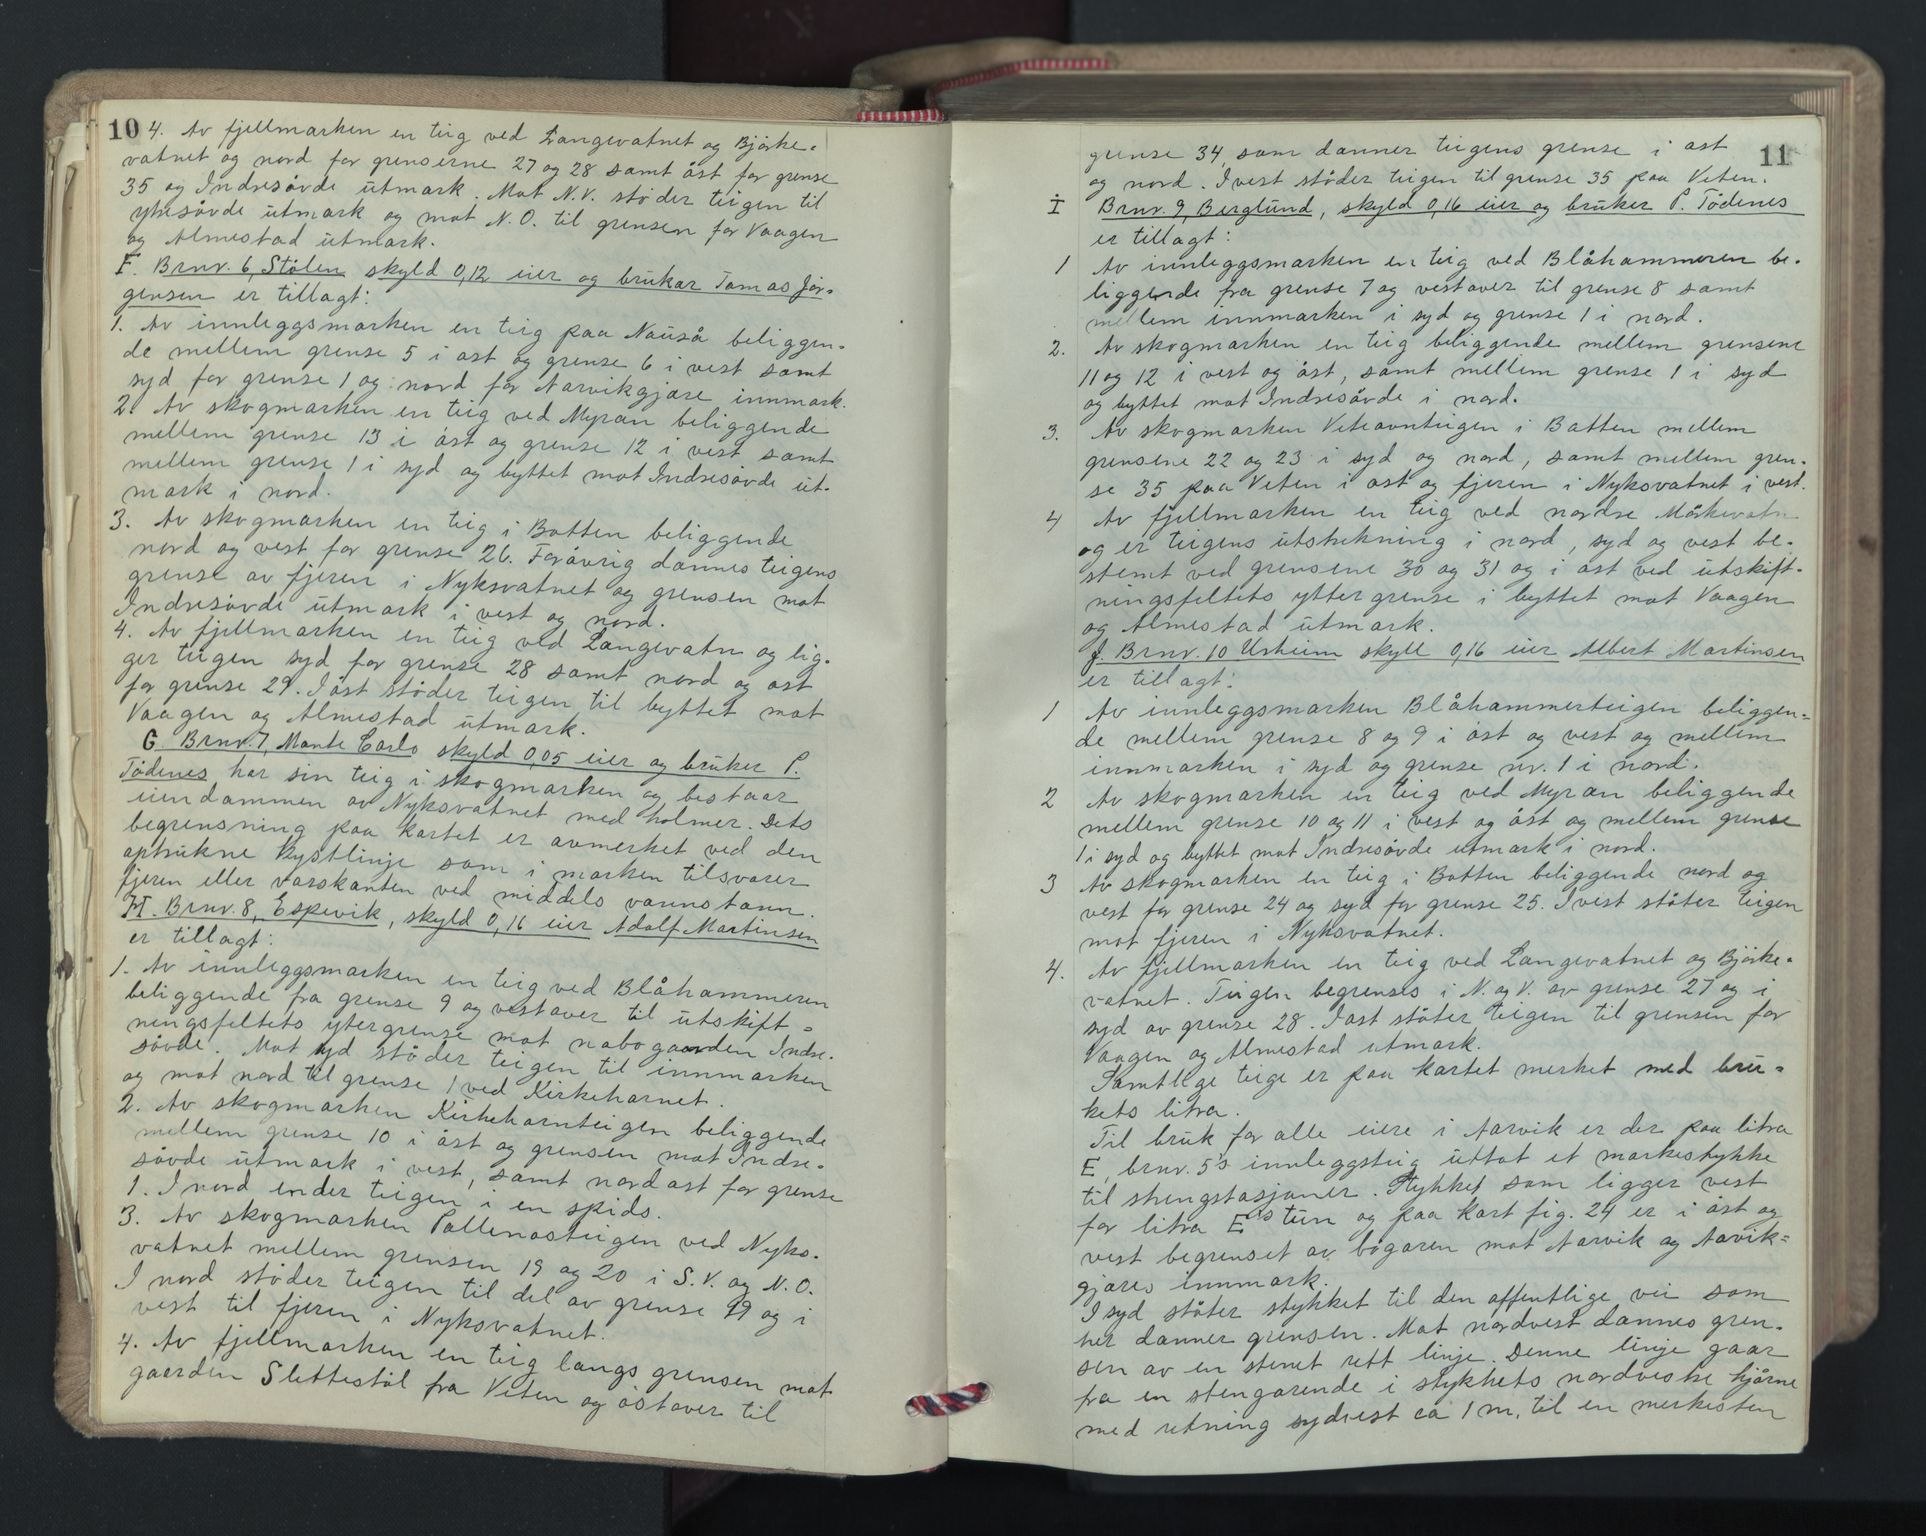 10
4. Av fjellmarken en teig ved Langevatnet og Bjørke-
vatnet og nord for grenserne 27 og 28 samt øst for grense
35 og Indresøvde utmark. Mot N.V. støder teigen til
ytresøvde utmark og mot N.O. til grensen for Vaagen
og Almestad utmark.
F. Brnr. 6, Stølen skyld 0,12 eier og bruker Tomas Jør-
gensen er tillagt:
1. Av innleggsmarken en teig paa Nauså beliggen-
de mellem grense 5 i øst og grense 6 i vest samt
syd for grense 1 og nord for Aarvikgjære innmark.
2. Av skogmarken en teig ved Myran beliggende
mellem grense 13 i øst og grense 12 i vest samt
mellem grense 1 i syd og byttet mot Indresøvde ut-
mark i nord.
3. Av skogmarken en teig i Botten beliggende
nord og vest for grense 26. Forøvrig dannes teigens
grense av fjeren i Nyksvatnet og grensen mot
Indresøvde utmark i vest og nord.
4. Av fjellmarken en teig ved Langevatn og lig-
ger teigen syd for grense 28 samt nord og øst
for grense 29. I øst støder teigen til byttet mot
Vaagen og Almestad utmark.
G. Brnr. 7, Monte Carlo skyld 0,05 eier og bruker P.
Tødenes har sin teig i skogmarken og bestaar
eiendommen av Nyksvatnet med holmer. Dets
begrensning paa kartet er avmerket ved den
optrukne kystlinje som i marken tilsvarer
fjeren eller vasskanten ved middels vannstann.
H. Brnr. 8, Espevik, skyld 0,16 eier Adolf Martinsen
er tillagt:
1. Av innleggsmarken en teig ved Blåhammeren
beliggende fra grense 9 og vestover til utskift-
ningsfeltets ytergrense mot nabogaarden Indre-
søvde. Mot syd støder teigen til innmarken
og mot nord til grense 1 ved Kirkehornet.
2. Av skogmarken Kirkehornteigen beliggende
mellem grense 10 i øst og grensen mot Indre-
søvde utmark i vest, samt nordost for grense
1. I nord ender teigen i en spids.
3. Av skogmarken Pallenosteigen ved Nyks-
vatnet mellem grensen 19 og 20 i S.V. og N.O.
I nord støder teigen til del av grense 19 og i
vest til fjeren i Nyksvatnet.
4. Av fjellmarken en teig langs grensen mot
gaarden Slettestøl fra Veten og østover til
11
grense 34, som danner teigens grense i øst
og nord. I vest støder teigen til grense 35 paa Veten.
I Brnr. 9, Berglund, skyld 0,16 eier og bruker P. Tødenes
er tillagt:
1 Av innleggsmarken en teig ved Blåhammeren be-
liggende fra grense 7 og vestover til grense 8 samt
mellem innmarken i syd og grense 1 i nord.
2. Av skogmarken en teig beliggende mellem grensene
11 og 12 i vest og øst, samt mellem grense 1 i syd
og byttet mot Indresøvde i nord.
3. Av skogmarken Veteovnteigen i Botten mellem
grensene 22 og 23 i syd og nord, samt mellem gren-
se 35 paa Veten i øst og fjeren i Nyksvatnet i vest.
4 Av fjellmarken en teig ved nordre Mørkevatn
og er teigens utstrekning i nord, syd og vest be-
stemt ved grensene 30 og 31 og i øst ved utskift-
ningsfeltets yttergrense i byttet mot Vaagen
og Almestad utmark.
J. Brnr. 10 Urheim skyll 0,16 eier Albert Martinsen
er tillagt:
1 Av innleggsmarken Blåhammerteigen beliggen-
de mellem grense 8 og 9 i øst og vest og mellem
innmarken i syd og grense nr. 1 i nord.
2 Av skogmarken en teig ved Myran beliggende
mellem grense 10 og 11 i vest og øst og mellem grense
1 i syd og byttet mot Indresøvde utmark i nord.
3 Av skogmarken en teig i Botten beliggende nord og
vest for grense 24 og syd for grense 25. I vest støter teigen
mot fjeren i Nyksvatnet.
4. Av fjellmarken en teig ved Langevatnet og Bjørke-
vatnet. Teigen begrenses i N. og V. av grense 27 og i
syd av grense 28. I øst støter teigen til grensen for
Vaagen og Almestad utmark.
Samtlige teige er paa kartet merket med bru-
kets litra.
Til bruk for alle eiere i Aarvik er der paa litra
E, brnr. 5's innleggsteig uttat et markestykke
til stengstasjoner. Stykket som ligger vest
for litra E's tun og paa kart fig. 24 er i øst og
vest begrenset av bøgaren mot Aarvik og Aavik-
gjæres innmark.
I syd støter stykket til den offentlige vei som
her danner grensen. Mot nordvest dannes gren-
sen av en stenet rett linje. Denne linje gaar
fra en stengarende i stykkets nordveske hjørne
med retning sydvest ca 1 m. til en merkesten